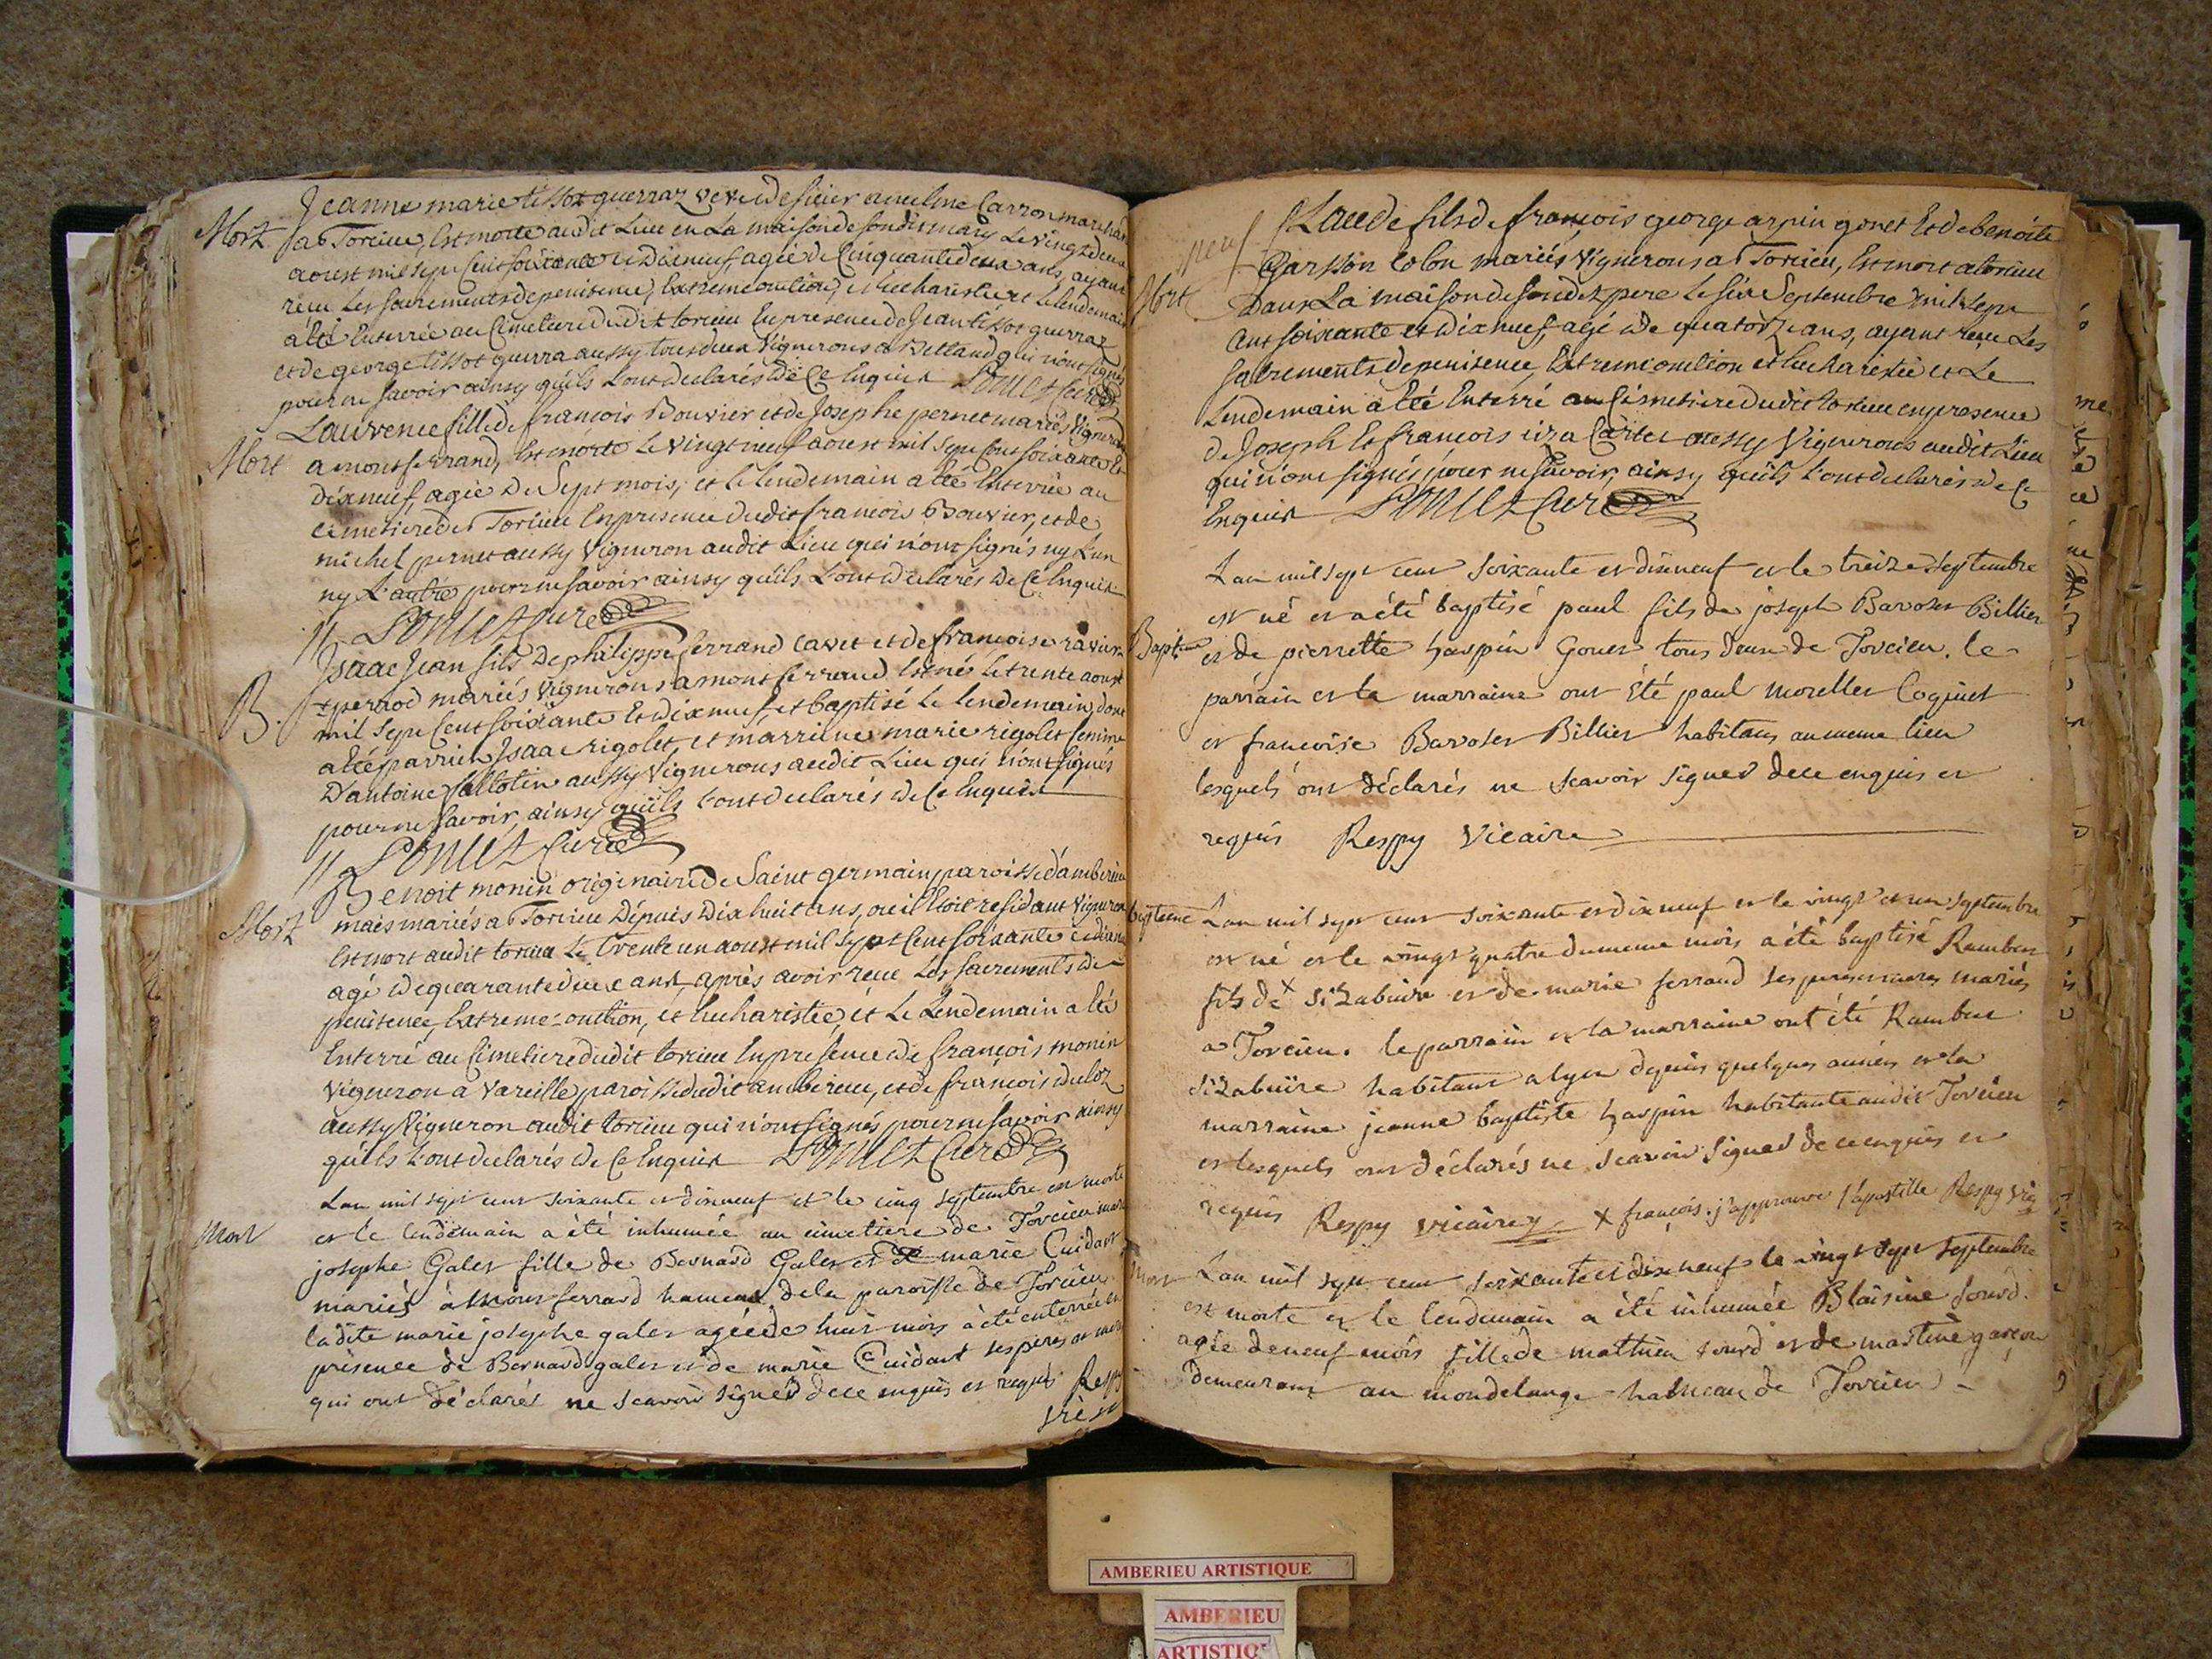 Jeanne marie tissot guerraz veve de sieur Carron
Mort
a Torcieu, Est morte audit Lieu en La maison de sondit mary Le vingt deux
aoust mil sept Cent soixante et Dixneuf, agée de Cinquante deux ans, ayant
reçu Les sacrements de penitence, Extreme onction, et Eucharistie et le lendemain
a été Enterrée au Cimetiere dudit torcieu En presence de Jean tissot guerraz
et de george tissot guerra aussy tous deux Vignerons a qui n'ont signés
pour ne savoir ainsy qu'ils L'ont declarés de Ce Enquis Curé
Laurence fille de francois Bouvier et de Josephe pernet mariés Vignerons
Mort
a montferrand, Est morte Le vingt neuf aoust mil sept Cent soixante Et
dixneuf, agée de Sept mois, et le lendemain a été Enterrée au
cimetiere de Torcieu En presence dudit francois Bouvier, et de
michel pernet aussy Vigneron audit Lieu qui n'ont signés ny L'un
ny L'autre pour ne savoir ainsy qu'ils L'ont declarés de Ce Enquis
Curé
Isaac Jean fils De philippe ferrand Cavet et de francoise ravier
B.
perrod mariés Vignerons a montferrand Est né Le trente aoust
mil sept Cent soixante Et dixneuf, et baptisé Le lendemain, dont
a été parrien Isaac rigolet, et marriene marie rigolet femme
D'antoine aussy Vignerons audit Lieu qui n'ont signés
pour ne savoir, ainsy qu'ils L'ont declarés de Ce Enquis
Curé
Benoit monin originaire de Saint germain, paroisse d'amberieu
Mort
mais mariés a Torcieu Depuis Dix huit ans, ou il Etoit residant Vigneron
Est mort audit torcieu Le trente un aoust mil Sept Cent soixante et dixneuf
agé de quarante deux ans, après avoir reçu Les sacrements de
penitence, Extreme-onction, et Eucharistie, et Le Lendemain a été
Enterré au Cimetiere dudit torcieu En presence de francois monin
Vigneron a Vareille paroisse dudit amberieu, et de francois
aussy Vigneron audit torcieu qui n'ont signés pour ne savoir ainsy
qu'ils L'ont declarés de Ce Enquis Curé
L'an mil sept cent soixante et dixneuf et le cinq septembre est morte
Mort
et le lendemain a été inhumée au cimetiere de Torcieu marie
josephe Galet fille de Bernard Galet et de marie Cuidant
mariés à Montferrand hameau de la paroisse de Torcieu
ladite marie josephe galet agée de huit mois à été enterrée en
présence de Bernard galet et de marie Cuidant ses peres et mere
qui ont déclarés ne sçavoir signer de ce enquis et requis Respy
neuf
Claude fils de francois george arpin gonet Et de benoite
Garsson Colon mariés Vignerons a Torcieu, Est mort a torcieu
Mort
Dans La maison de sondit pere Le six Septembre mil sept
Cent soixante et dixneuf, agé de quatorze ans, ayant reçu Les
sacrements de penitence, Extreme onction et Eucharistie et Le
Lendemain a été Enterré au Cimetiere dudit torcieu en presence
de Joseph Et francois aussy Vignerons audit Lieu
qui n'ont signés, pour ne savoir, ainsy qu'ils L'ont declarés de Ce
Enquis Curé
L'an mil sept cent soixante et dixneuf et le treize septembre
est né et a été baptisé paul fils de joseph Baroset Billier
Bapteme
et de pierrette harpin Gonet tous deux de Torcieu. le
parrain et la marraine ont été paul morellet Coquet
et francoise Baroset Billier habitans au meme lieu
lesquels ont déclarés ne sçavoir signer de ce enquis et
requis Respy Vicaire
bapteme
L'an mil sept cent soixante et dixneuf et le vingt et un septembre
est né et le vingt quatre du meme mois a été baptisé Rambert
fils de x Sizabuire et de marie ferrand ses pere et mere mariés
a Torcieu. le parrain et la marraine ont été Rambert
Sizabuire habitant a lyon depuis quelques années et la
marraine jeanne baptiste harpin habitante audit Torcieu
et lesquels ont déclarés ne sçavoir signer de ce enquis et
requis Respy vicaire x francois. j'approuve l'apostille Respy vic
Mort
L'an mil sept cent soixante et dixneuf et le vingt sept septembre
est morte et le lendemain a été inhumée Blaisine sourd
agée de neuf mois fille de mathieu sourd et de martine garçon
demeurant au mondelange hameau de Torcieu
AMBERIEU ARTISTIQUE
AMBERIEU
ARTISTIQUE